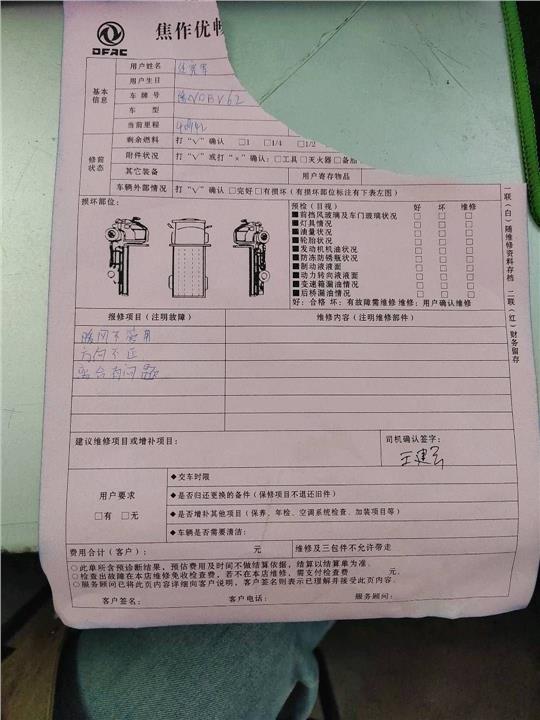 DFAC
焦作优畅
基本信息
用户姓名
用户生日
车牌号
车型
当前里程
修前状态
剩余燃料 打“√”确认 □1 □1/4 □1/2
附件状况 打“√”或打“×”确认：□工具 □灭火器 □备胎
其它装备 用户寄存物品
车辆外部情况 打“√”确认 □完好 □有损坏（有损坏部位标注有下表左图）
损坏部位： 预检（目视） 好 坏 维修
■前挡风玻璃及车门玻璃状况 □ □ □
■灯具情况 □ □ □
■油量状况 □ □ □
■轮胎状况 □ □ □
■发动机机油状况 □ □ □
■防冻防锈瓶状况 □ □ □
■制动液液面 □ □ □
■动力转向液液面 □ □ □
■变速箱漏油情况 □ □ □
■后桥漏油情况 □ □ □
好：合格 坏：有故障需维修 维修：用户确认维修
报修项目（注明故障） 维修内容（注明维修部件）
暖风不管用
方向不正
离合有问题
建议维修项目或增补项目： 司机确认签字：
用户要求
□有 □无
◆交车时限
◆是否归还更换的备件（保修项目不退还旧件）
◆是否增补其他项目（保养、年检、空调系统检查、加装项目等）
◆车辆是否需要清洁：
费用合计（客户）： 元 维修及三包件不允许带走
○此单所含预诊断结果，预估费用及时间不做结算依据，结算以结算单为准。
○检查出故障在本店维修免收检查费，若不在本店维修，需支付检查费 元。
○服务顾问已将此页内容详细向客户说明，客户签名则表示已理解并接受此页内容。
客户签名： 客户电话： 服务顾问：
一联（白）随维修资料存档 二联（红）财务留存